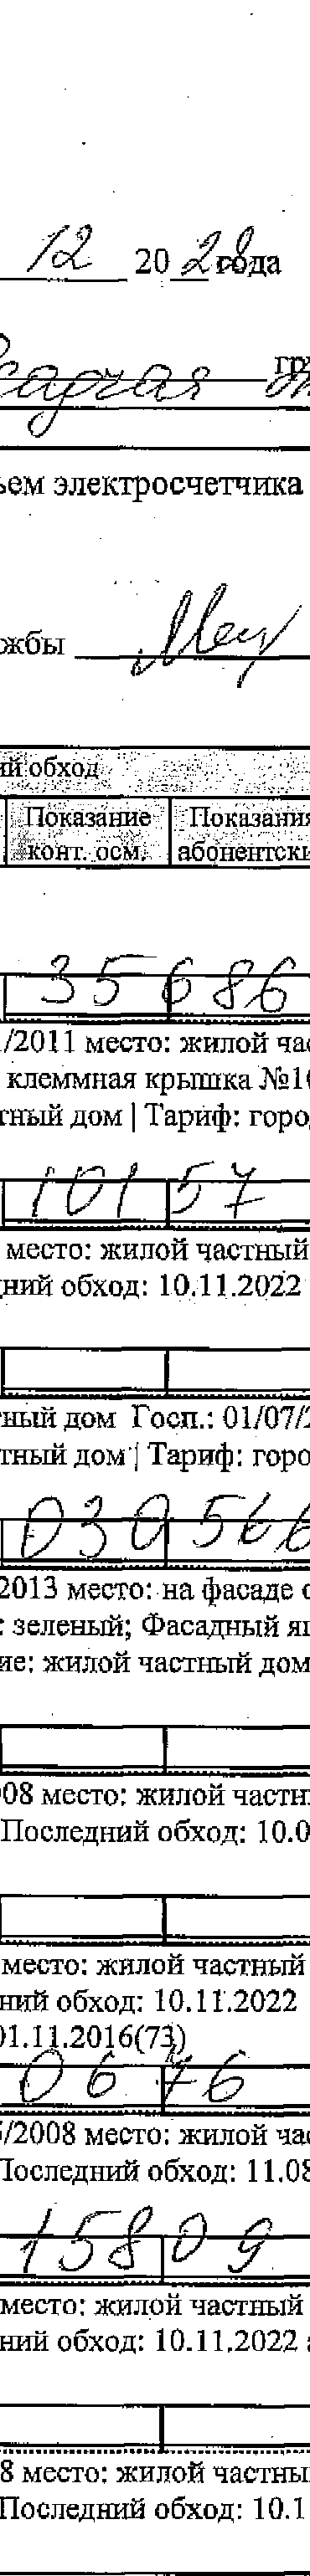 12 20 28 года
ьем электросчетчика
жбы
ий обход
Показание Показания
конт. осм. абонентски
35686
/2011 место: жилой час
клеммная крышка №1
тный дом | Тариф: горо
10157
место: жилой частный
ний обход: 10.11.2022
ный дом Госп.: 01/07/2
тный дом | Тариф: горо
030566
2013 место: на фасаде
: зеленый; Фасадный ящ
ие: жилой частный дом
08 место: жилой частн
Последний обход: 10.0
место: жилой частный
ний обход: 10.11.2022
01.11.2016(73)
0676
/2008 место: жилой час
Последний обход: 11.08
15809
место: жилой частный
ний обход: 10.11.2022
8 место: жилой частны
Последний обход: 10.1